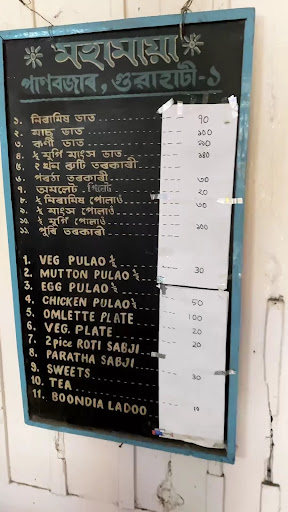 মহামায়া
পাণবজাৰ, গুৱাহাটী-১
১. নিৰামিষ ভাত 70
২. মাছ ভাত ১০০
৩. কণী ভাত ৯০
৪. ½ মুৰ্গি মাংস ভাত ১৪০
৫. ২ খন ৰুটি তৰকাৰী
৬. পৰঠা তৰকাৰী ৩০
৭. অমলেট ২০
৮. ½ নিৰামিষ পোলাও ৩০
৯. ½ মাংস পোলাও
১০. ½ মুৰ্গি পোলাও ১০০
১১. পুৰি তৰকাৰী
1. VEG PULAO ½
2. MUTTON PULAO ½ 30
3. EGG PULAO ½
4. CHICKEN PULAO ½ 50
5. OMLETTE PLATE 100
6. VEG. PLATE 20
7. 2 pice ROTI SABJI 20
8. PARATHA SABJI
9. SWEETS 30
10. TEA
11. BOONDIA LADOO 10